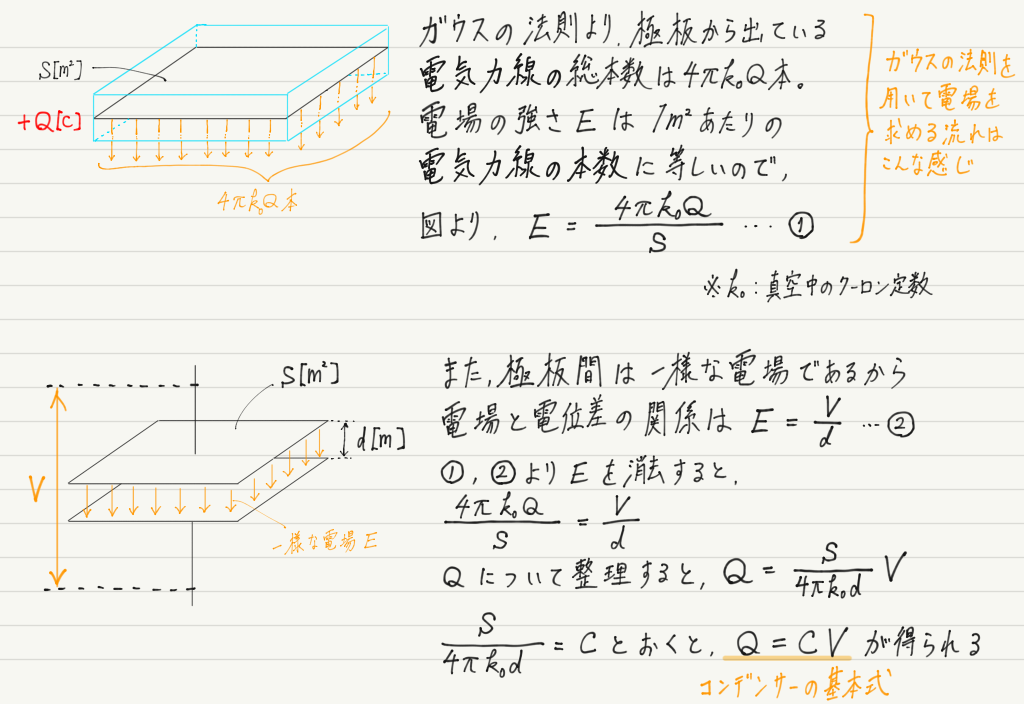 S[m²]
+Q[C]
4πk₀Q本
ガウスの法則より、極板から出ている
電気力線の総本数は4πk₀Q本。
電場の強さEは1m²あたりの
電気力線の本数に等しいので,
図より, E = 4πk₀Q/S … ①
※k₀:真空中のクーロン定数
ガウスの法則を
用いて電場を
求める流れは
こんな感じ
S[m²]
d[m]
V
一様な電場E
また,極板間は一様な電場であるから
電場と電位差の関係は E = V/d … ②
①,②よりEを消去すると,
4πk₀Q/S = V/d
Qについて整理すると, Q = S/4πk₀d V
S/4πk₀d = Cとおくと, Q = CV が得られる
コンデンサーの基本式